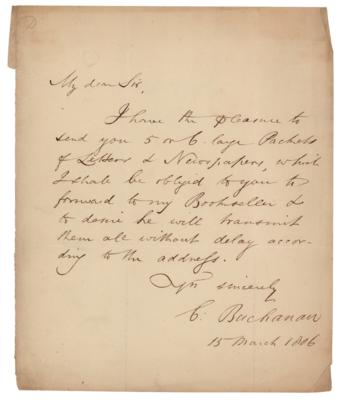 My dear Sir,
I have the pleasure to
send you 5 or 6 large Packets
of Letters & Newspapers, which
I shall be oblig'd to you to
forward to my Bookseller &
to desire he will transmit
them all without delay accor-
ding to the address.
Yrs sincerely
C: Buchanan
15 March 1806